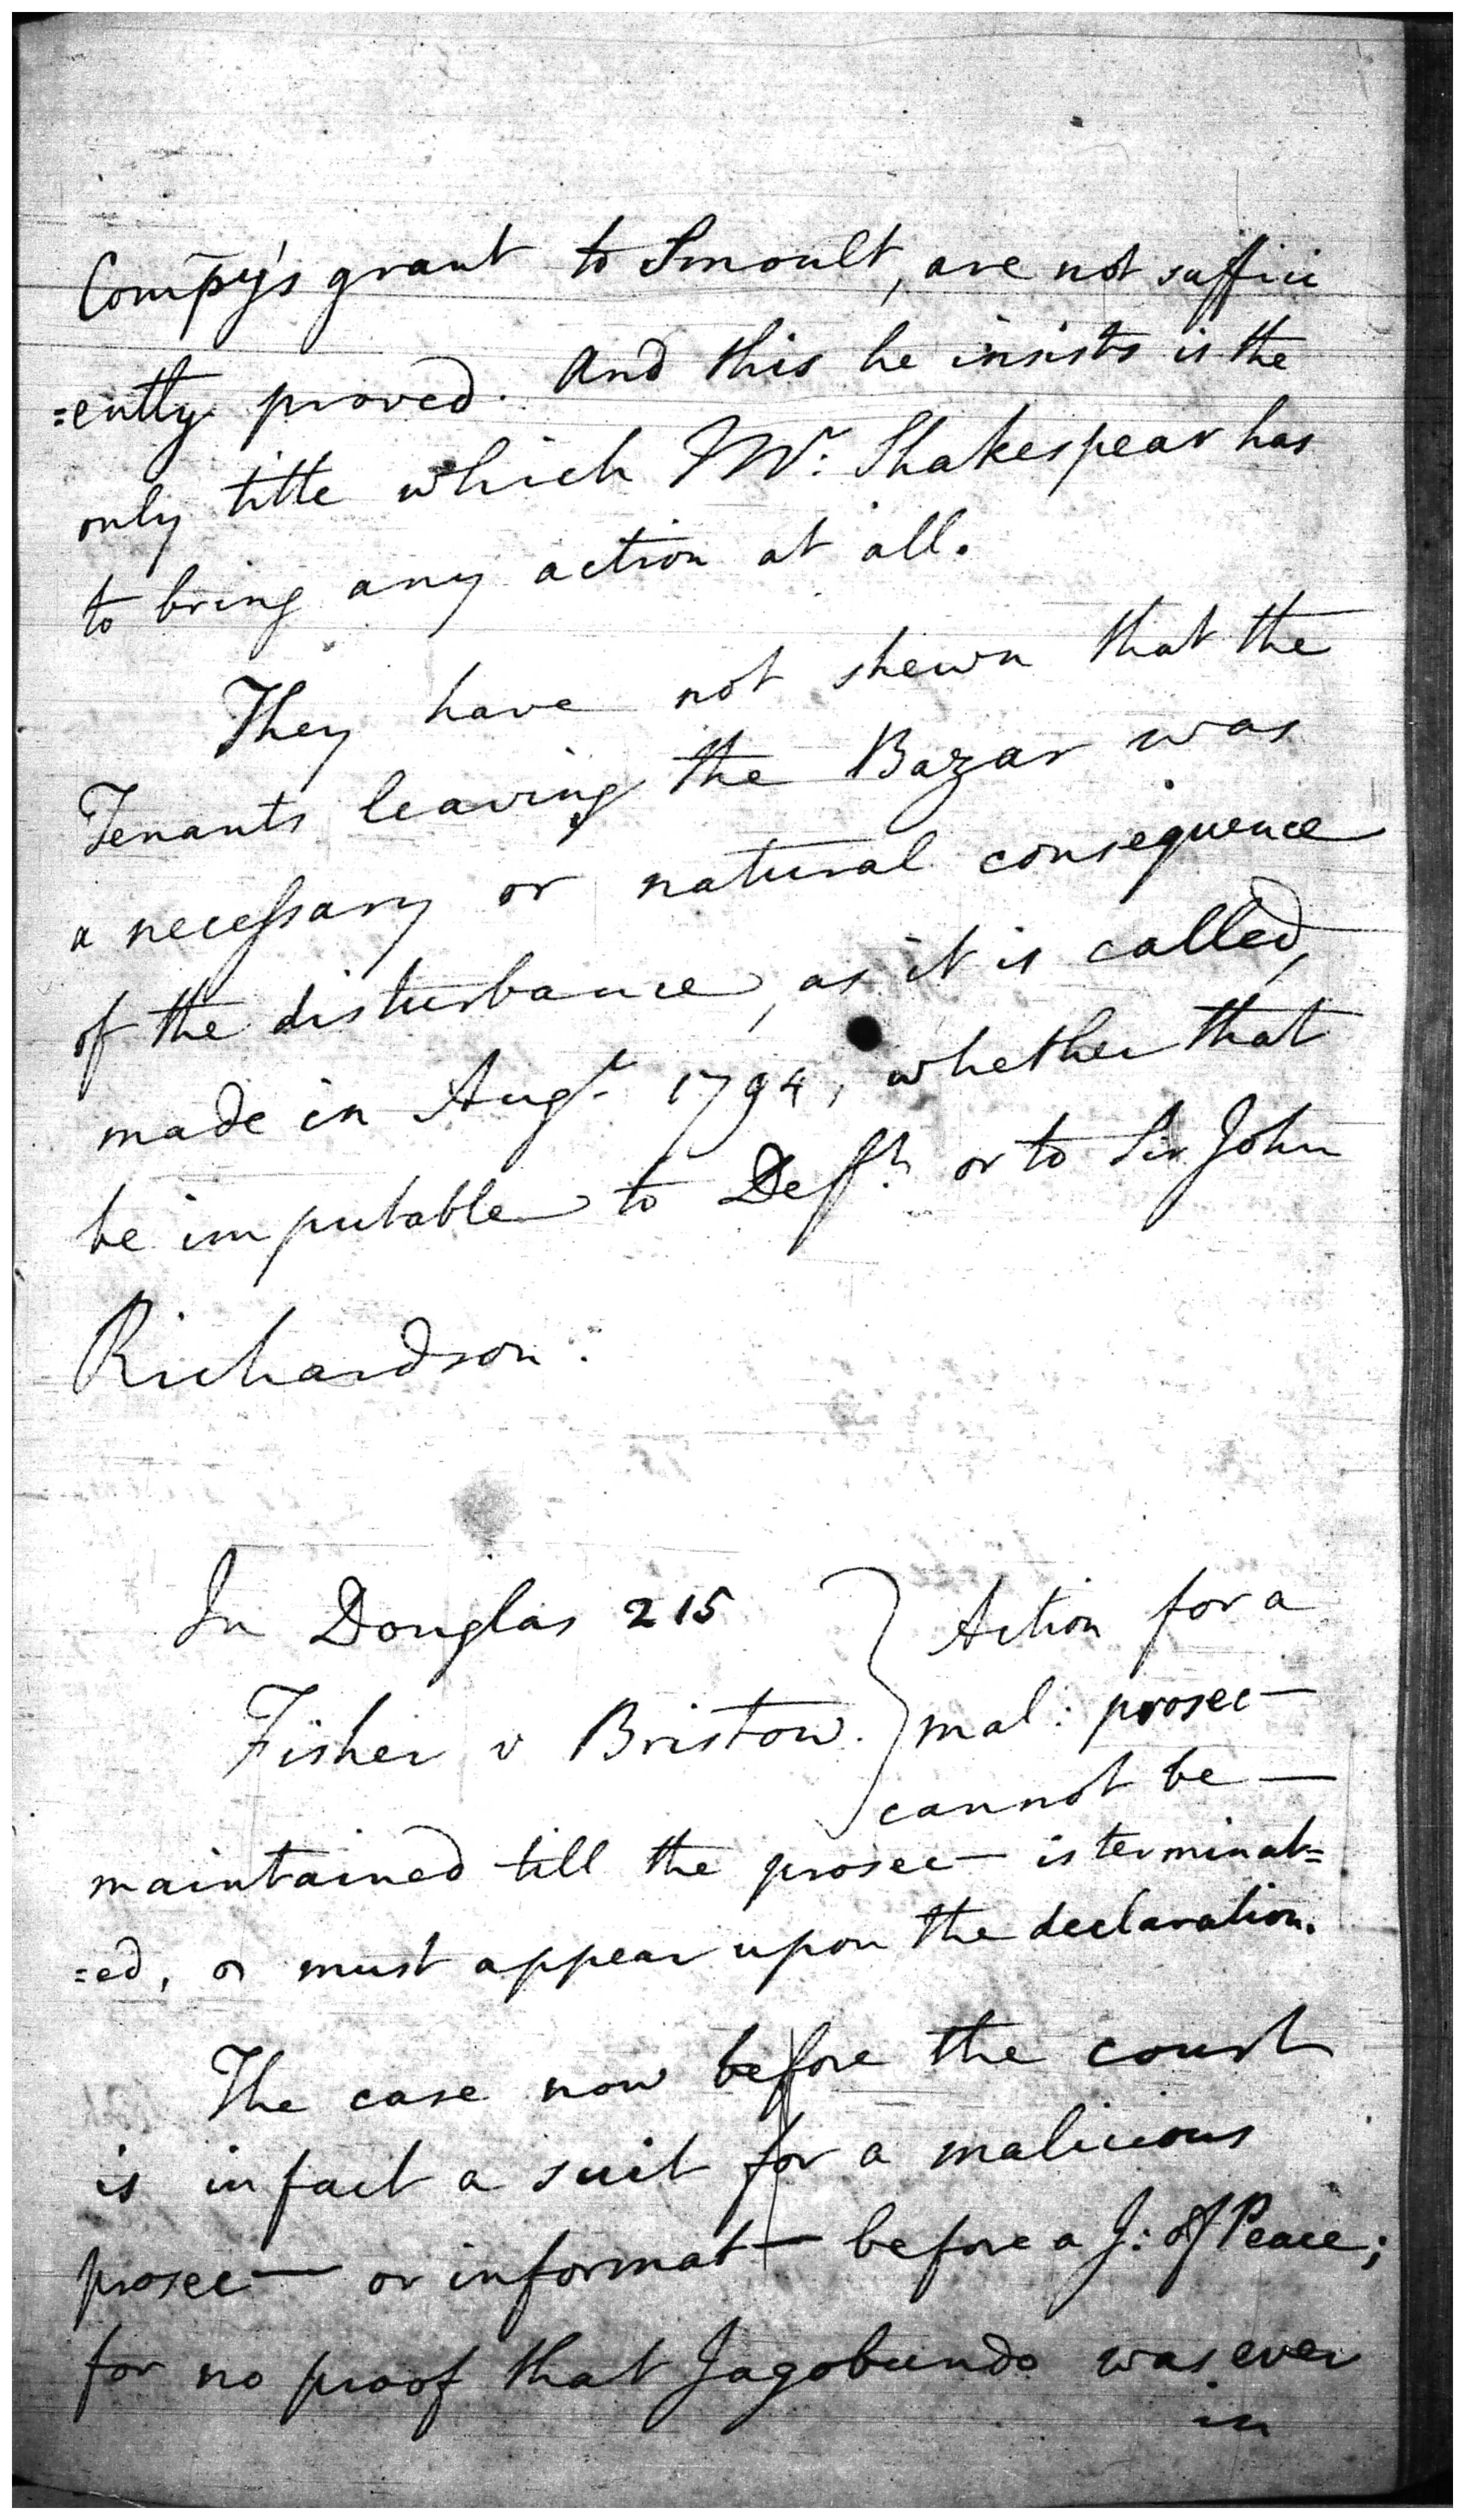 Compy's grant to Smoult, are not suffici
=ently proved. And this he insists is the
only title which Mr. Shakespear has
to bring any action at all.
They have not shewn that the
Tenants leaving the Bazar was
a necessary or natural consequence
of the disturbance, as it is called,
made in Augt. 1794, whether that
be imputable to Deft. or to Sir John
Richardson.
In Douglas 215 } Action for a
Fisher v Bristow. } mal: prosec—
cannot be —
maintained till the prosec— is terminat=
=ed, & must appear upon the declaration.
The case now before the court
is in fact a suit for a malicious
prosec— or informat— before a J: of Peace;
for no proof that Jagobundo was ever
in